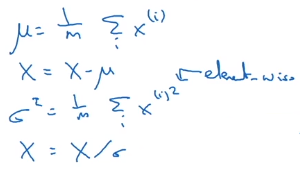 μ = 1/m Σ_i x^(i)
X = X - μ
σ² = 1/m Σ_i x^(i)² ← element-wise
X = X/σ